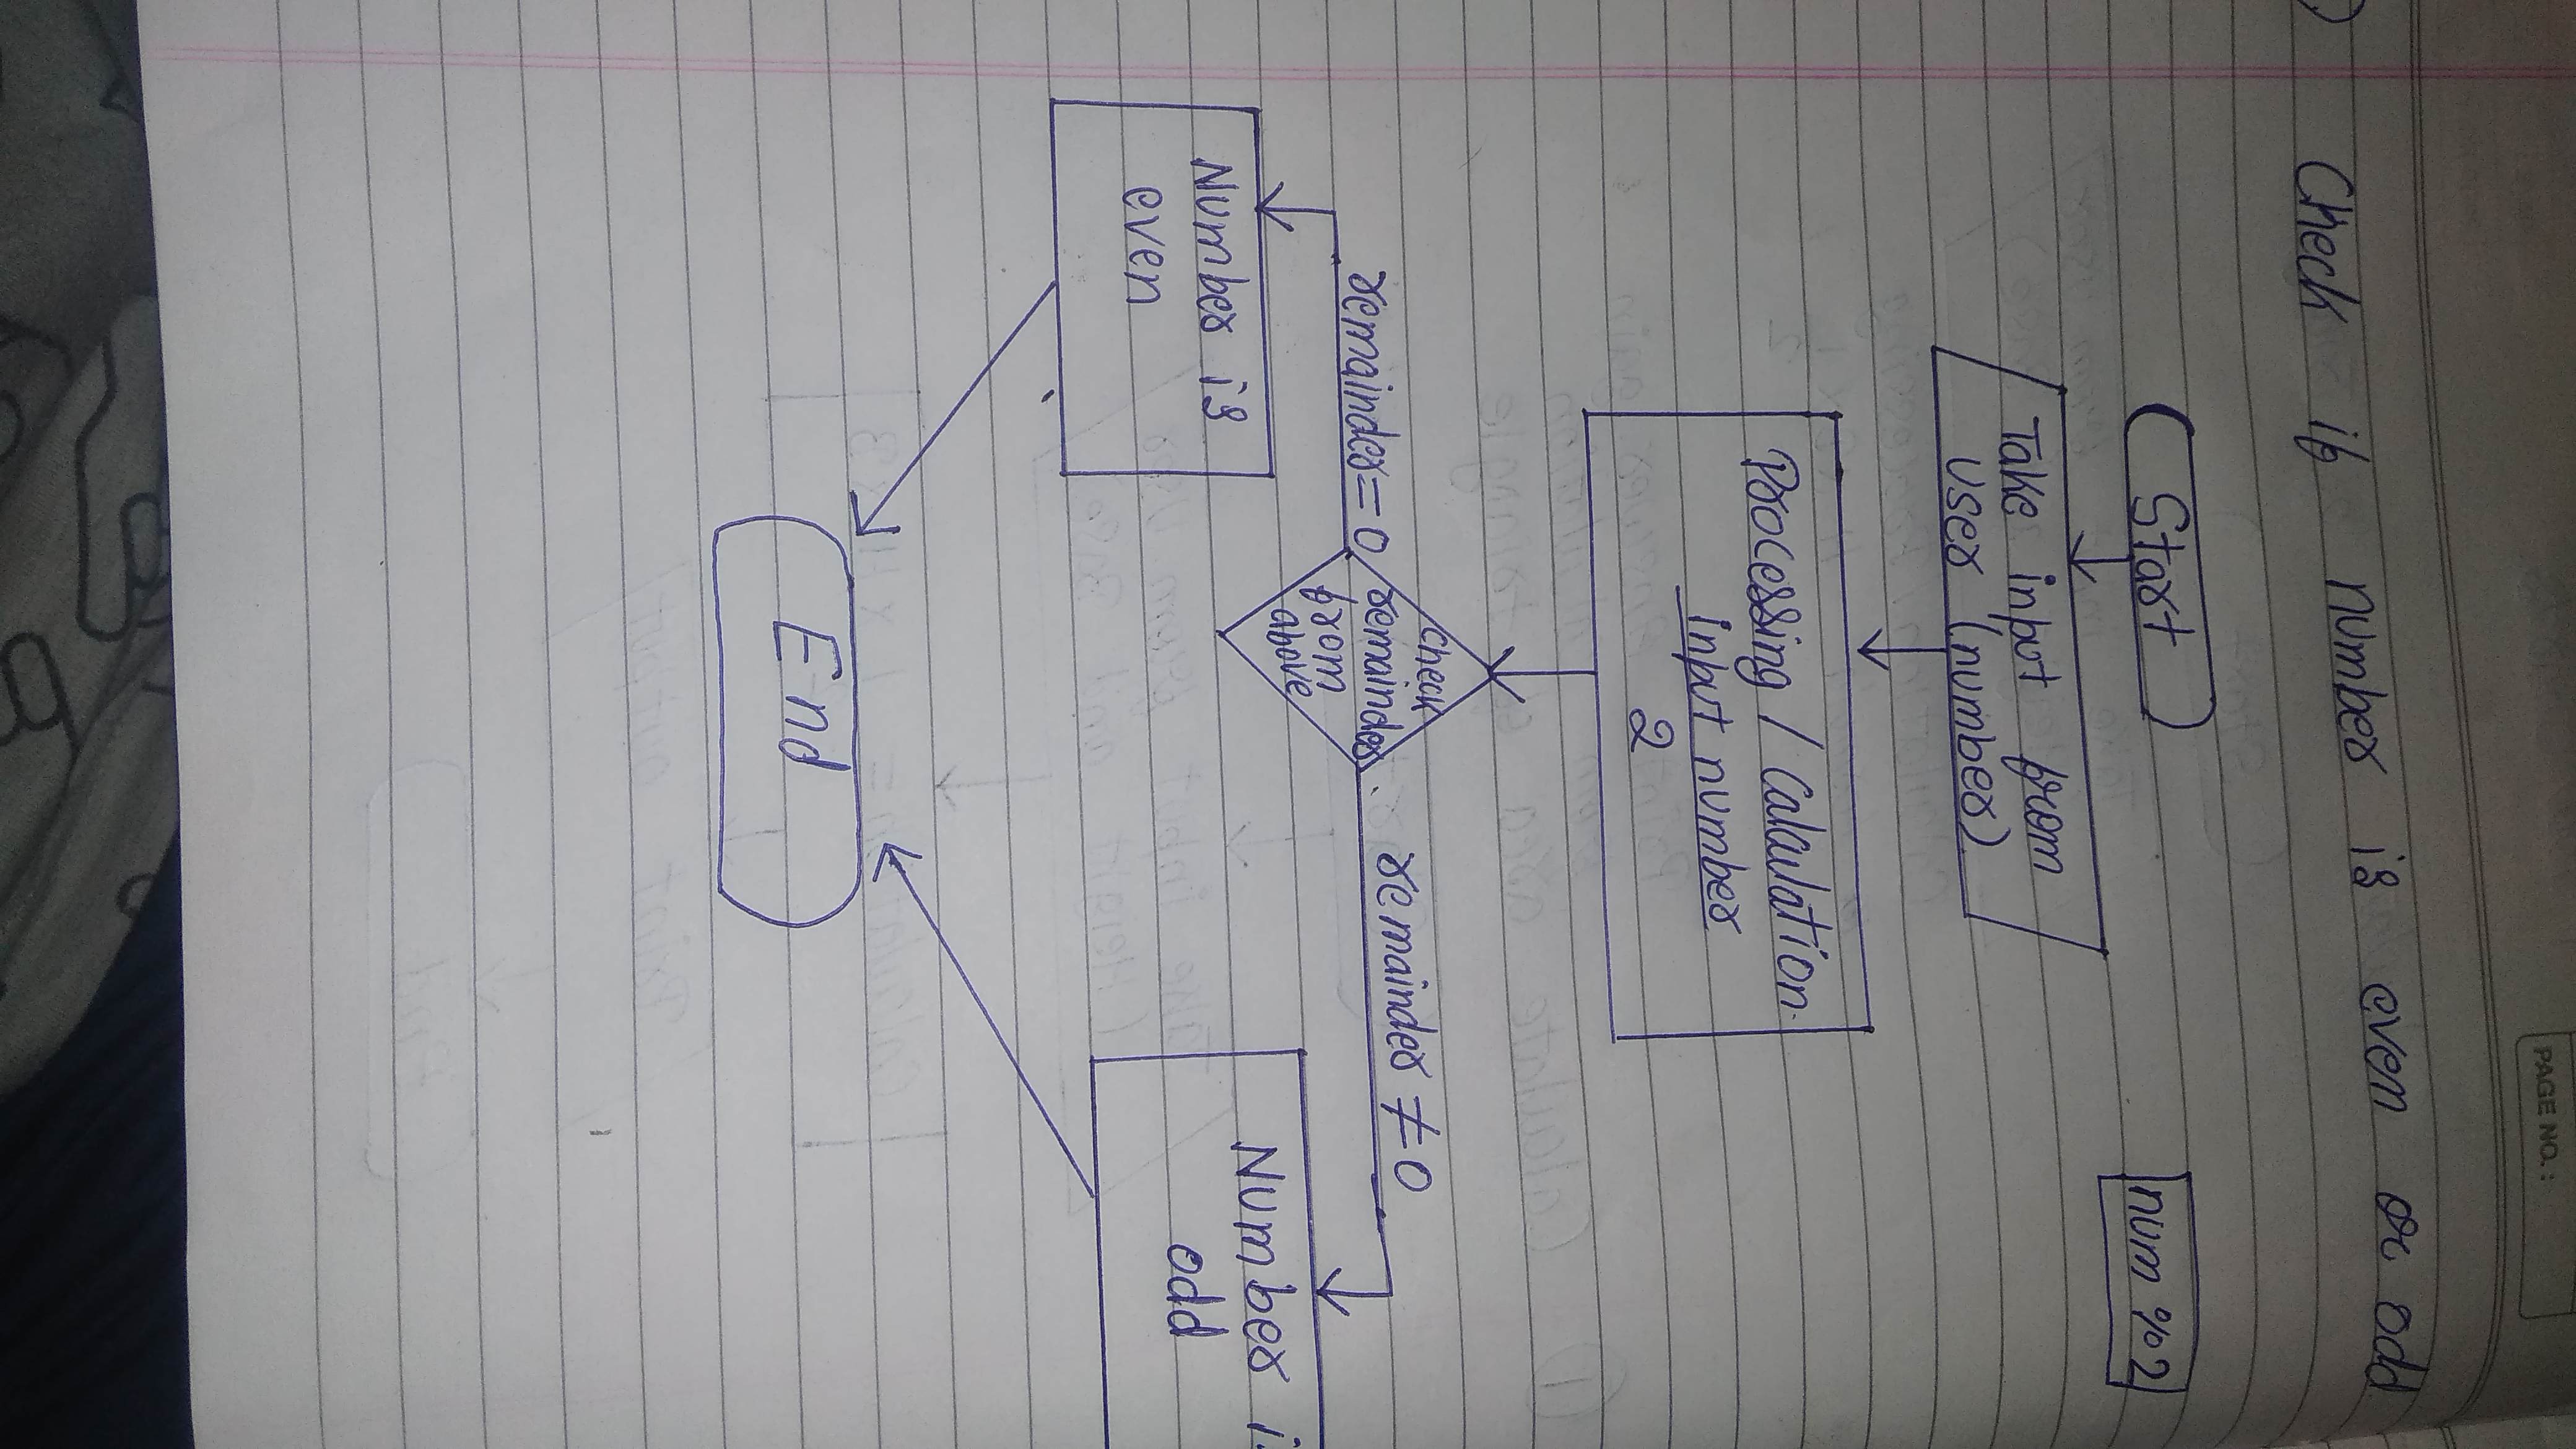 PAGE NO.:
)
Check if number is even or odd
Start
num % 2
Take input from
user (number)
Processing / Calculation.
input number
2
check
remainder
from
above
remainder = 0
remainder ≠ 0
Number is
even
Number i
odd
End